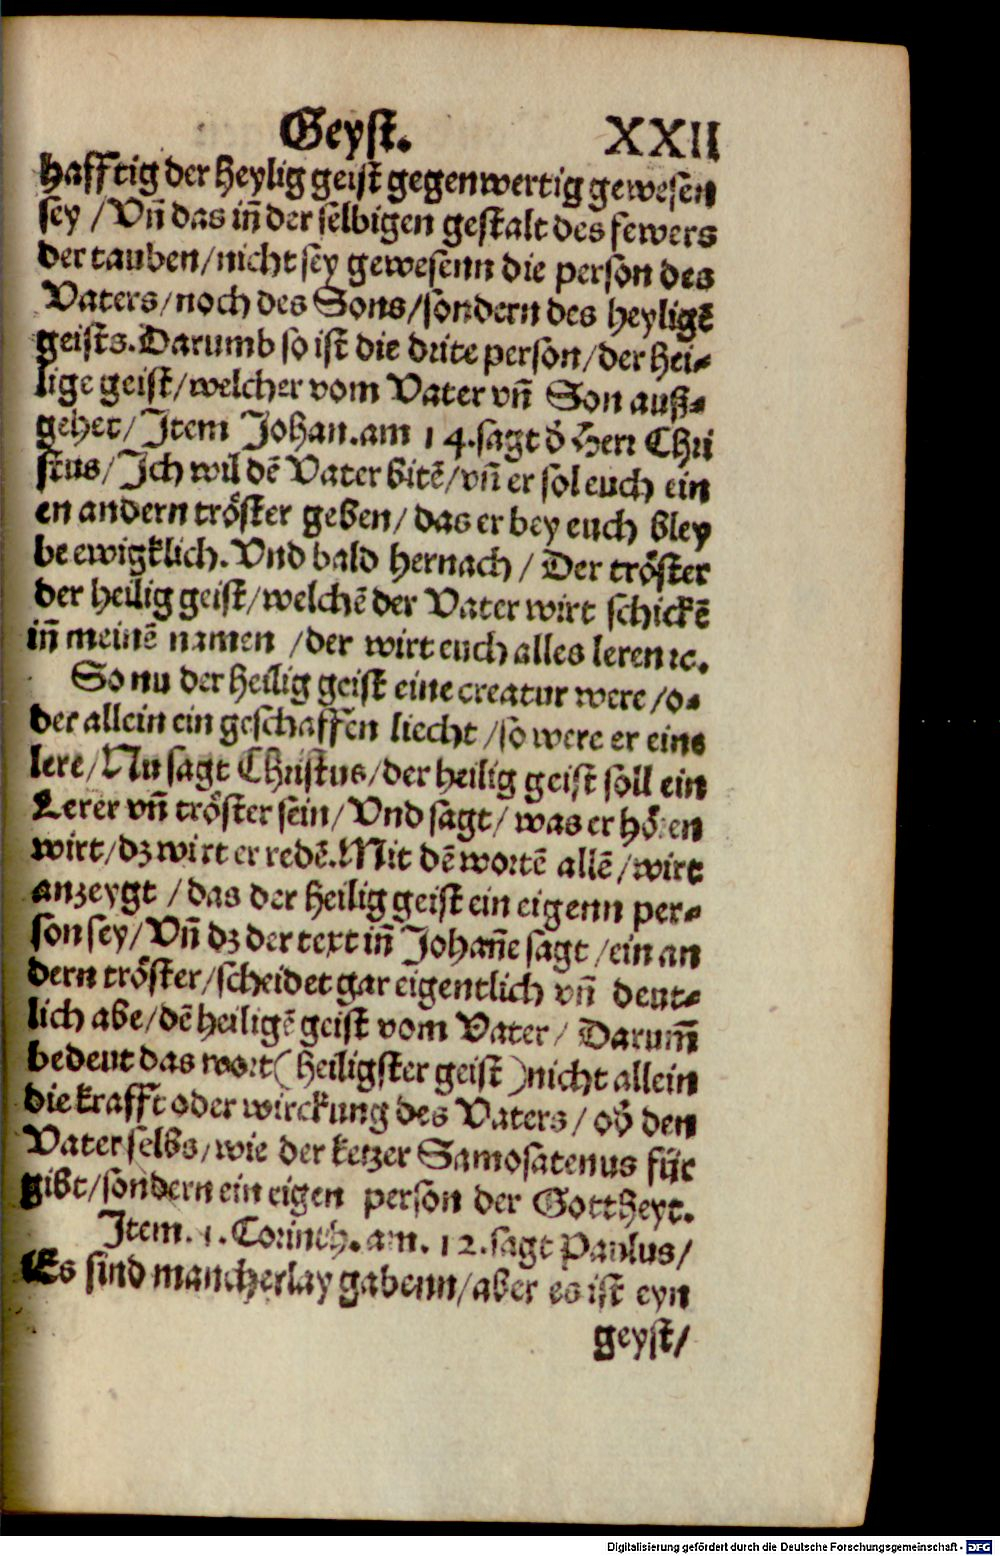 Geyst. XXII
hafftig der Heylig geist gegenwertig gewesen
sey / Vñ das iñ der selbigen gestalt des fewers
der tauben / nicht sey gewesenn die person des
Vaters / noch des Sons / sondern des heyligẽ
geists. Darumb so ist die drite person / der hei⸗
lige geist / welcher vom Vater vñ Son auß⸗
gehet / Item Johan. am 14. sagt d̕ Herr Chri
stus / Ich wil dẽ Vater bitẽ / vñ er sol euch ein
en andern trøster geben / das er bey euch bley
be ewigklich. Vnd bald hernach / Der trøster
der heilig geist / welchẽ der Vater wirt schickẽ
iñ meinẽ namen / der wirt euch alles leren ꝛc.
So nu der heilig geist eine creatur were / o⸗
der allein ein geschaffen liecht / so were er eine
lere / Nu sagt Christus / der heilig geist soll ein
Lerer vñ trøster sein / Vnd sagt / was er hören
wirt / dz wirt er redẽ. Mit dẽ wortẽ allẽ / wirt
anzeygt / das der heilig geist ein eigenn per⸗
son sey / Vñ dz der text iñ Johañe sagt / ein an
dern trøster / scheidet gar eigentlich vñ deut⸗
lich abe / dẽ heiligẽ geist vom Vater / Darum̃
bedeut das wort (heiligster geist) nicht allein
die krafft oder wirckung des Vaters / od̕ den
Vater selbs / wie der ketzer Samosatenus für
gibt / sondern ein eigen person der Gottheyt.
Item. 1. Corinth. am. 12. sagt Paulus /
Es sind mancherlay gabenn / aber es ist eyn
geyst /
Digitalisierung gefördert durch die Deutsche Forschungsgemeinschaft - DFG